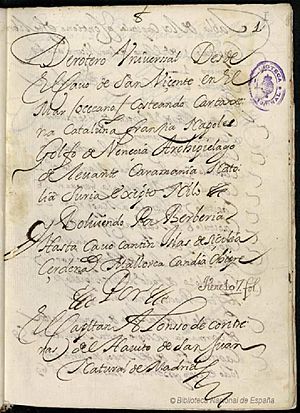 8
1
Derotero Universal Desde
El Cavo de San Vicente en El
Mar Occeano / Costeando Cartaxe
na Cataluña Francia Napol
Golfo de Venecia Archipielago
de Levante Caramania Nato
lia Suria Exipto Nilo
y Bolviendo Por Berberia
Hasta Cavo Cantin Islas de Sicilia
Cerdeña Mallorca Candia
tiene 107 fol
Por
El Capitan Alonso de contre
ras del Havito de San Juan
Natural de Madrid
BIBLIOTECA NACIONAL
© Biblioteca Nacional de España